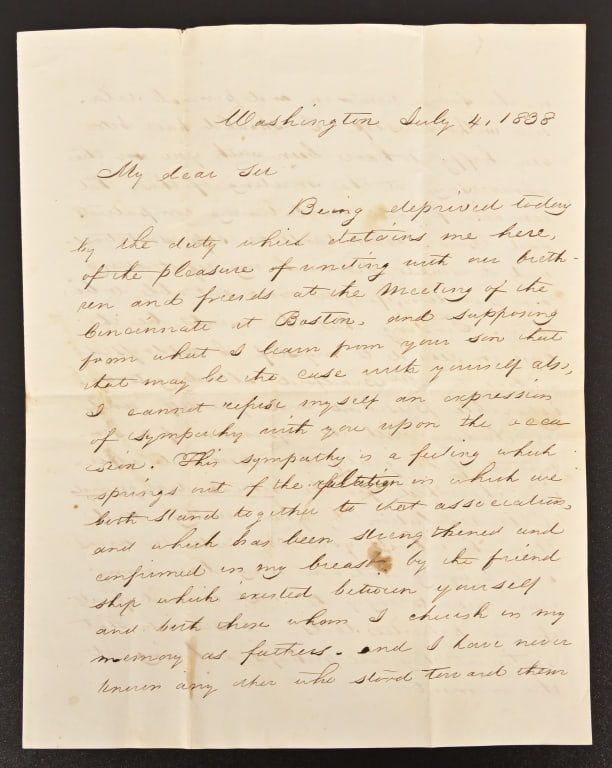 Washington July 4, 1838
My dear Sir
Being deprived today
by the duty which detains me here,
of the pleasure of uniting with our breth-
ren and friends at the Meeting of the
Cincinnate at Boston, and supposing
from what I learn from your son that
that may be the case with yourself also,
I cannot refuse myself an expression
of sympathy with you upon the occa
sion. This sympathy is a feeling which
springs out of the relation in which we
both stand together to that association,
and which has been strengthened and
confirmed in my breast by the friend
ship which existed between yourself
and both those whom I cherish in my
memory as fathers. and I have never
known any other who stood toward them